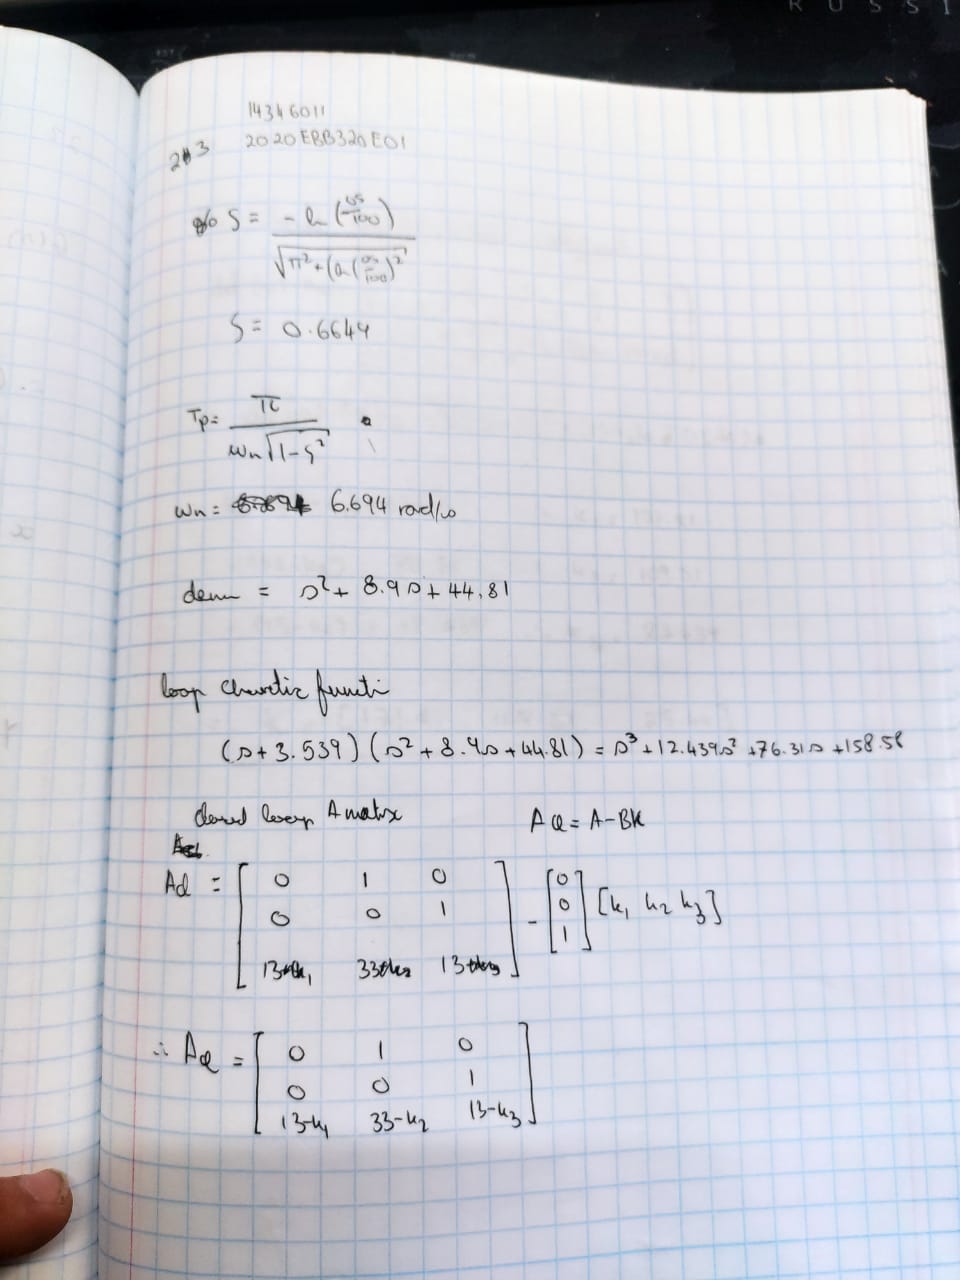 R U S S I
14346011
2020EBB320E01
2.3
ζ = -ln(OS/100) / √(π² + (ln(OS/100))²)
ζ = 0.6649
Tp = π / (ωn√(1-ζ²))
ωn = 6.694 rad/s
denn = s² + 8.9s + 44.81
loop
(s + 3.539)(s² + 8.9s + 44.81) = s³ + 12.439s² + 76.31s + 158.58
closed loop A matrix Acl = A-BK
Acl = [ 0 1 0
0 0 1
13 33 13 ] - [ 0 0 1 ] [k₁ k₂ k₃]
∴ Acl = [ 0 1 0
0 0 1
13-k₁ 33-k₂ 13-k₃ ]